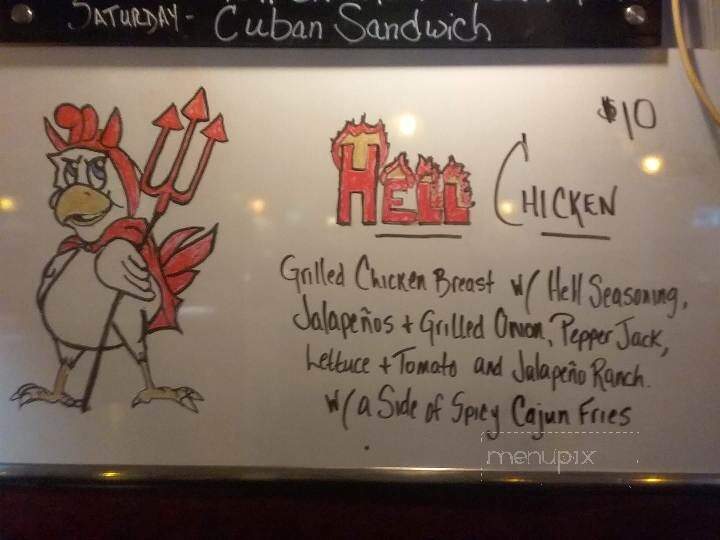 SATURDAY - CUBAN SANDWICH
$10
HELL CHICKEN
Grilled Chicken Breast w/ Hell Seasoning,
Jalapeños + Grilled Onion, Pepper Jack,
Lettuce + Tomato and Jalapeño Ranch.
w/ a Side of Spicy Cajun Fries
menupix